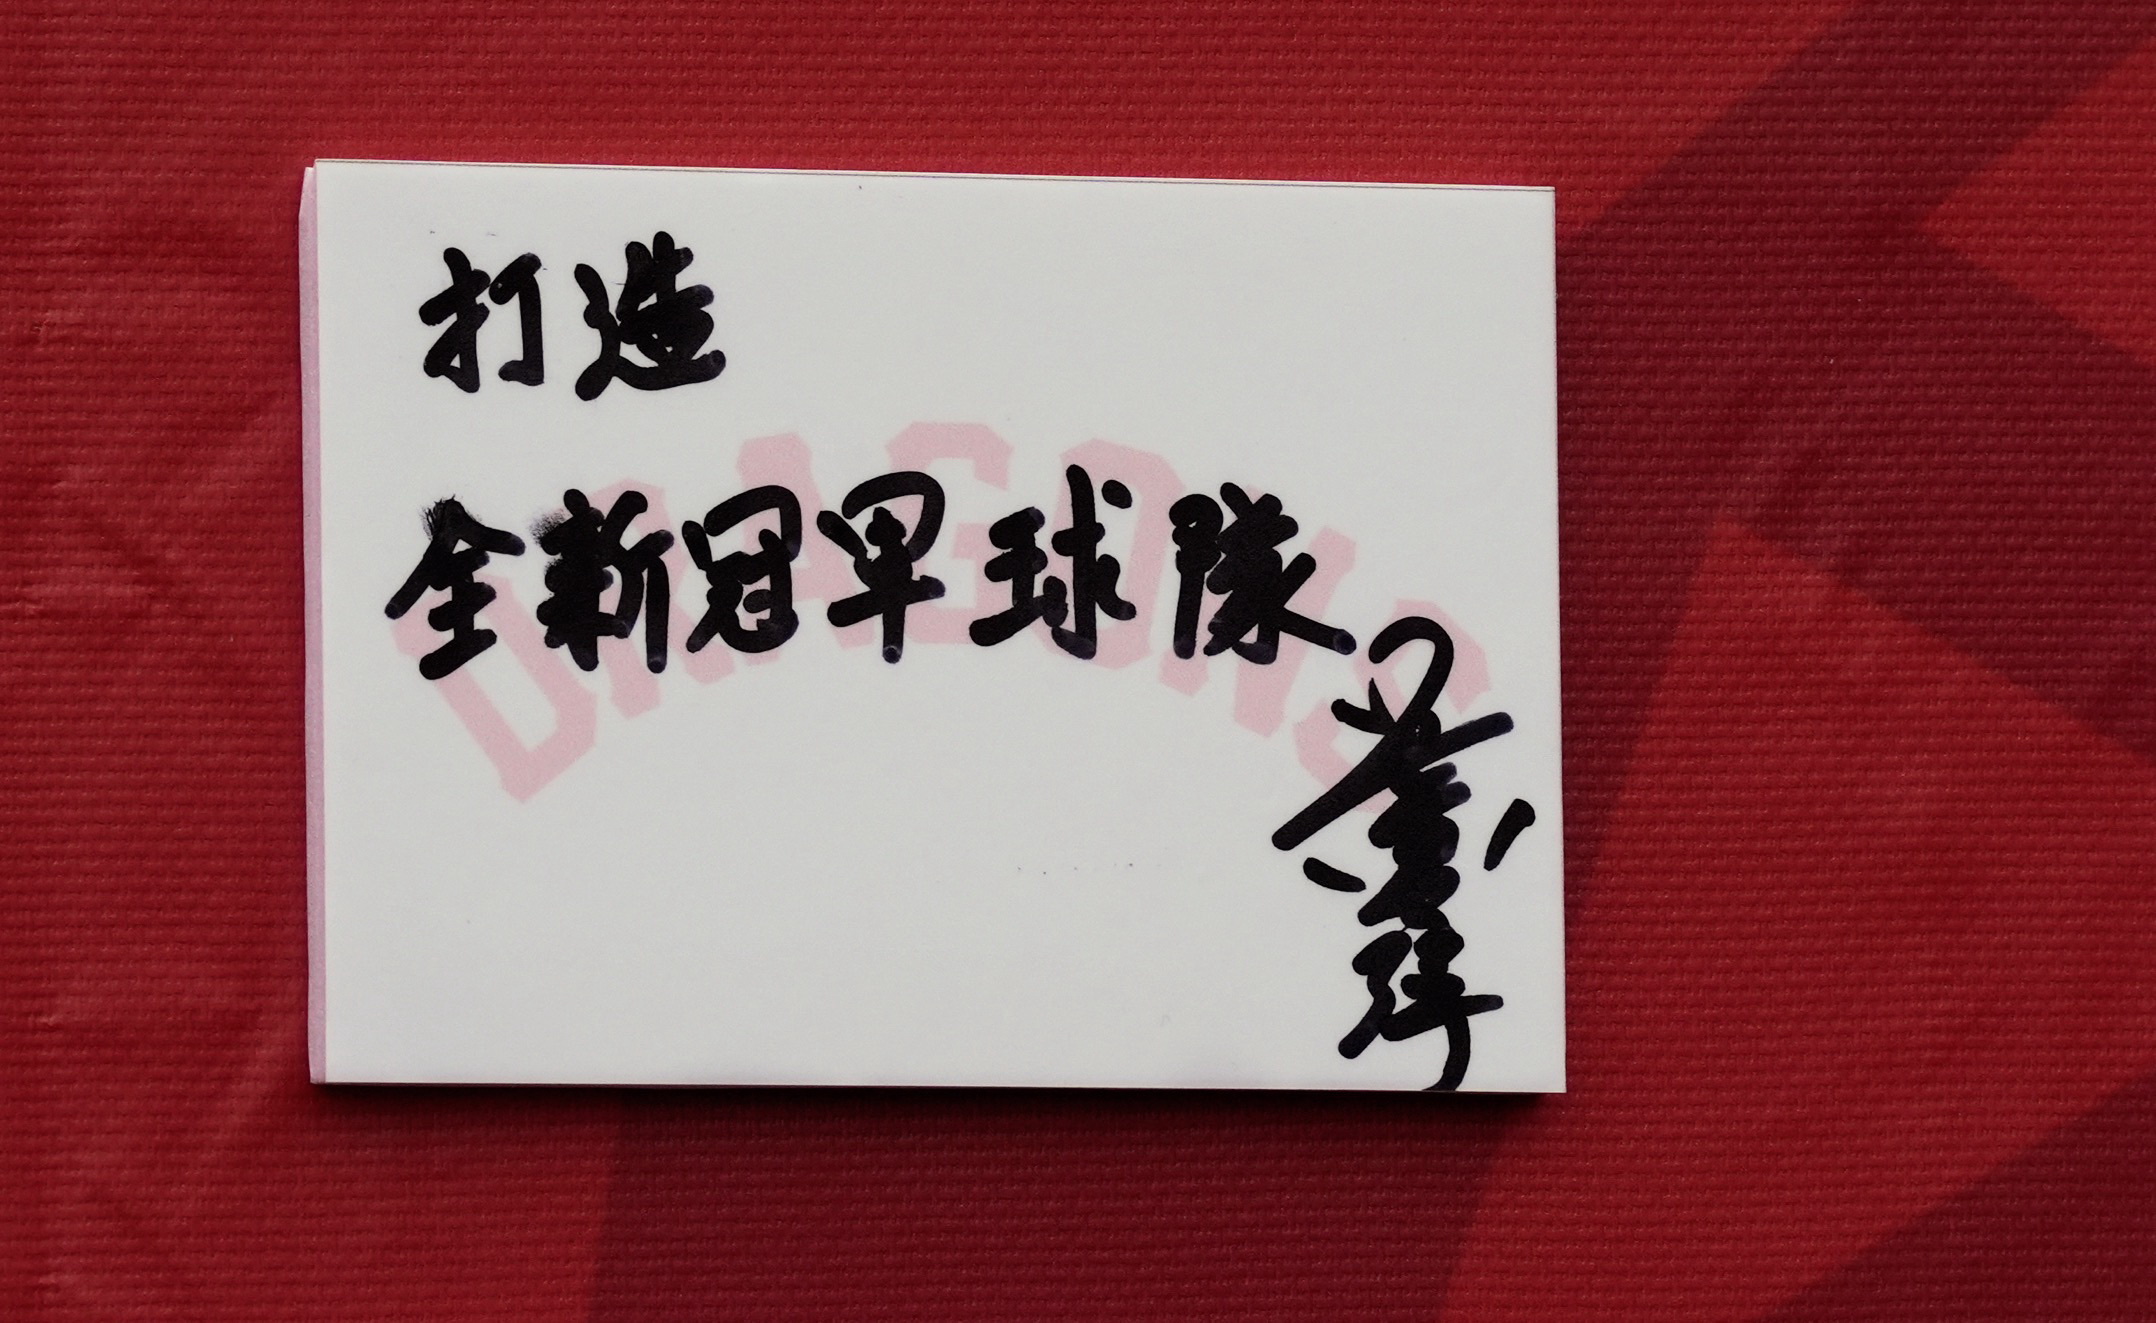 打造
DRAGONS
全新冠軍球隊